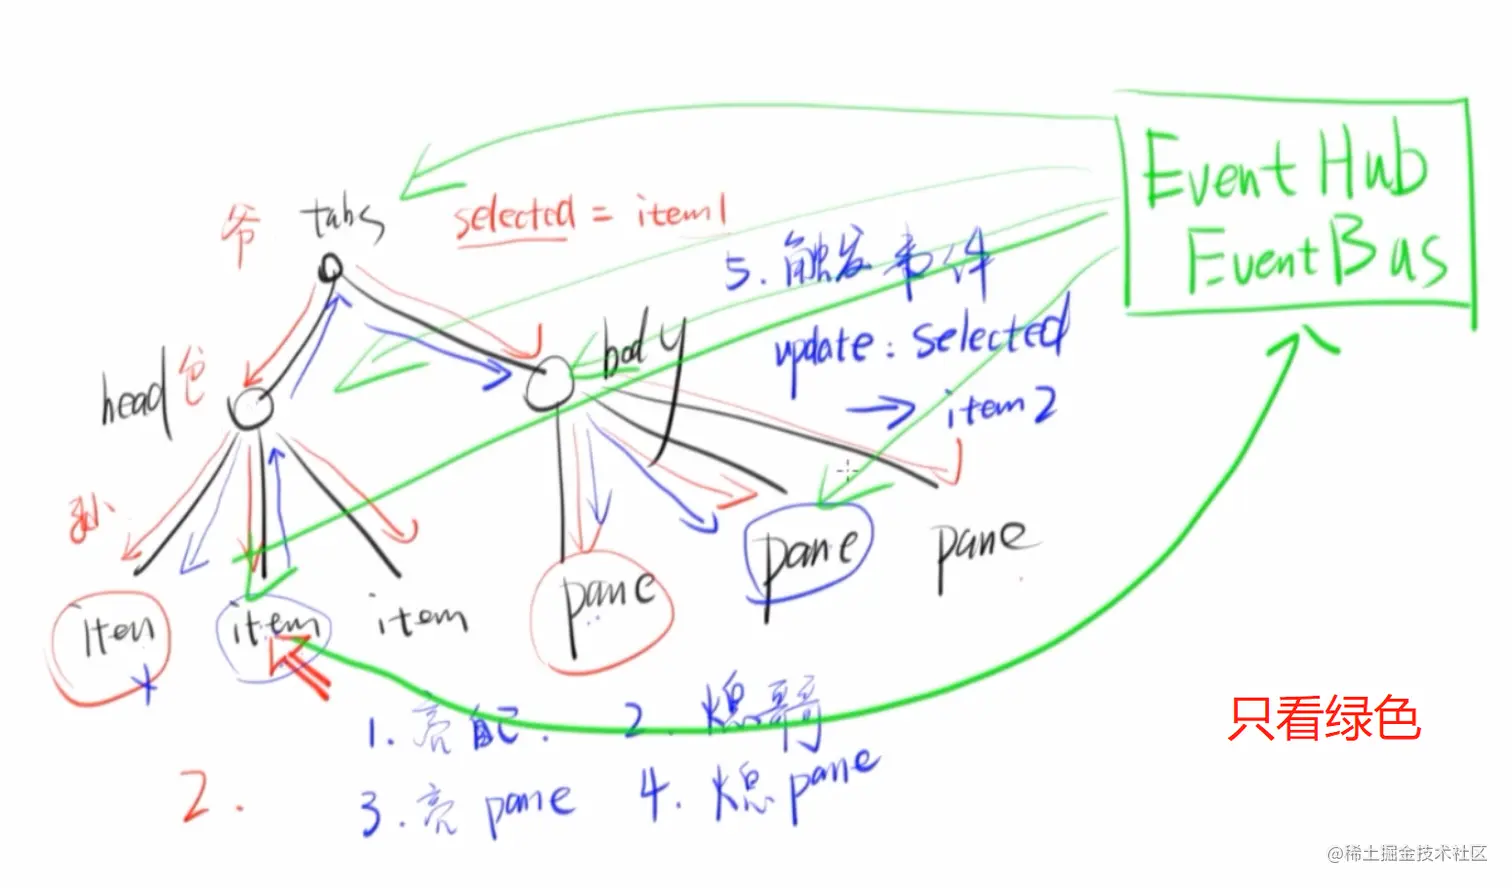 Event Hub
EventBus
爷 tabs
selected = item1
5. 触发事件
update: selected
→ item2
head 爸
body
孙
Iten
item
item
pane
pane
pane
1. 亮自己. 2. 熄哥哥
3. 亮 pane 4. 熄 pane
2.
只看绿色
@稀土掘金技术社区